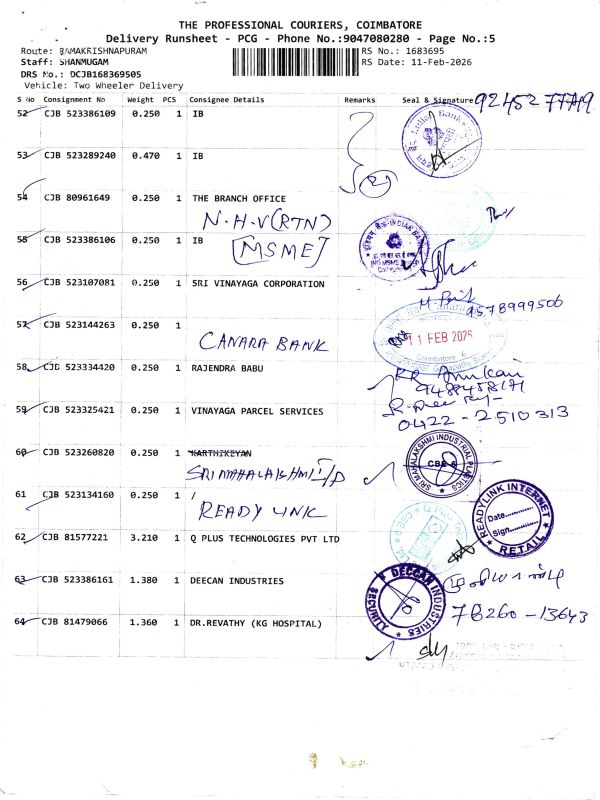 THE PROFESSIONAL COURIERS, COIMBATORE
Delivery Runsheet - PCG - Phone No.:9047080280 - Page No.:5
Route: RAMAKRISHNAPURAM RS No.: 1683695
Staff: SHANMUGAM RS Date: 11-Feb-2026
DRS No.: DCJB168369505
Vehicle: Two Wheeler Delivery
S No Consignment No Weight PCS Consignee Details Remarks Seal & Signature 92452 77419
52 CJB 523386109 0.250 1 IB
53 CJB 523289240 0.470 1 IB
54 CJB 80961649 0.250 1 THE BRANCH OFFICE
N.H.V (RTN)
55 CJB 523386106 0.250 1 IB
[MSME]
56 CJB 523107081 0.250 1 SRI VINAYAGA CORPORATION
9578999506
57 CJB 523144263 0.250 1
CANARA BANK
11 FEB 2026
58 CJB 523334420 0.250 1 RAJENDRA BABU
59 CJB 523325421 0.250 1 VINAYAGA PARCEL SERVICES
0422-2510313
60 CJB 523260820 0.250 1 KARTHIKEYAN
SRI MAHALAKSHMI I/P
SRI MAHALAKSHMI INDUSTRIAL PLASTICS
61 CJB 523134160 0.250 1
READY LINK
READYLINK INTERNET
Date
Sign
RETAIL
62 CJB 81577221 3.210 1 Q PLUS TECHNOLOGIES PVT LTD
63 CJB 523386161 1.380 1 DEECAN INDUSTRIES
DECCAN INDUSTRIES
SECURITY
78260-13643
64 CJB 81479066 1.360 1 DR.REVATHY (KG HOSPITAL)